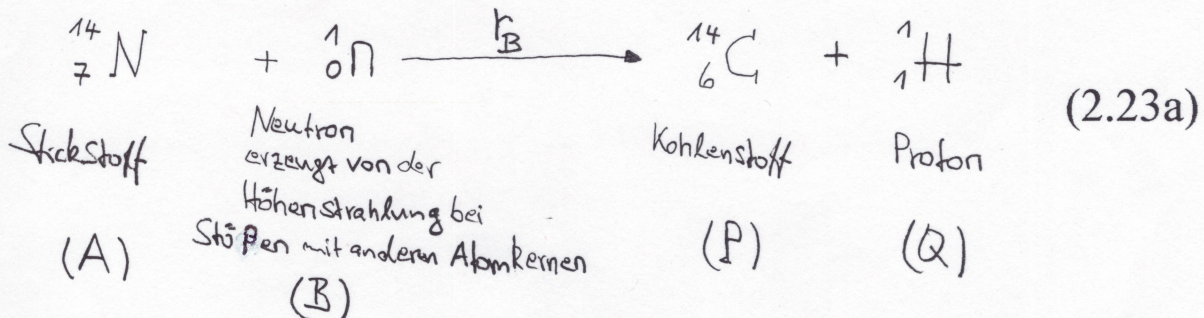 ¹⁴₇N + ¹₀n —r_B→ ¹⁴₆C + ¹₁H (2.23a)
Stickstoff
Neutron
erzeugt von der
Höhenstrahlung bei
Stößen mit anderen Atomkernen
Kohlenstoff
Proton
(A)
(B)
(P)
(Q)